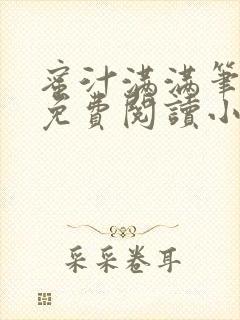 蜜汁满满筆
免費閱讀小
采采卷耳